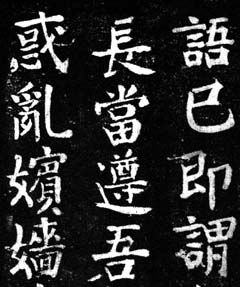 語已即謂
長當遵吾
惑亂嬪嬙